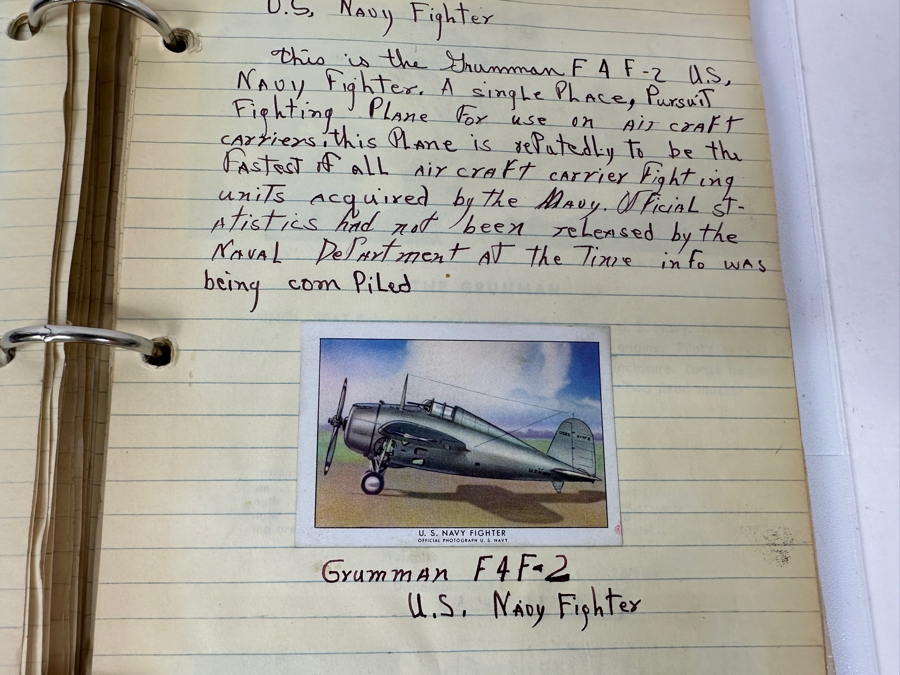 U.S, Navy Fighter
this is the Grumman F 4 F-2 U.S,
NAVY Fighter. A single Place, Pursuit
Fighting Plane For use on Air craft
carriers. this Plane is reputedly to be the
fastest of all air craft carrier Fighting
units acquired by the Navy. Official st-
atistics had not been released by the
Naval Department at the Time info was
being com Piled
U. S. NAVY FIGHTER
OFFICIAL PHOTOGRAPH U. S. NAVY
Grumman F4F-2
U.S. Navy Fighter